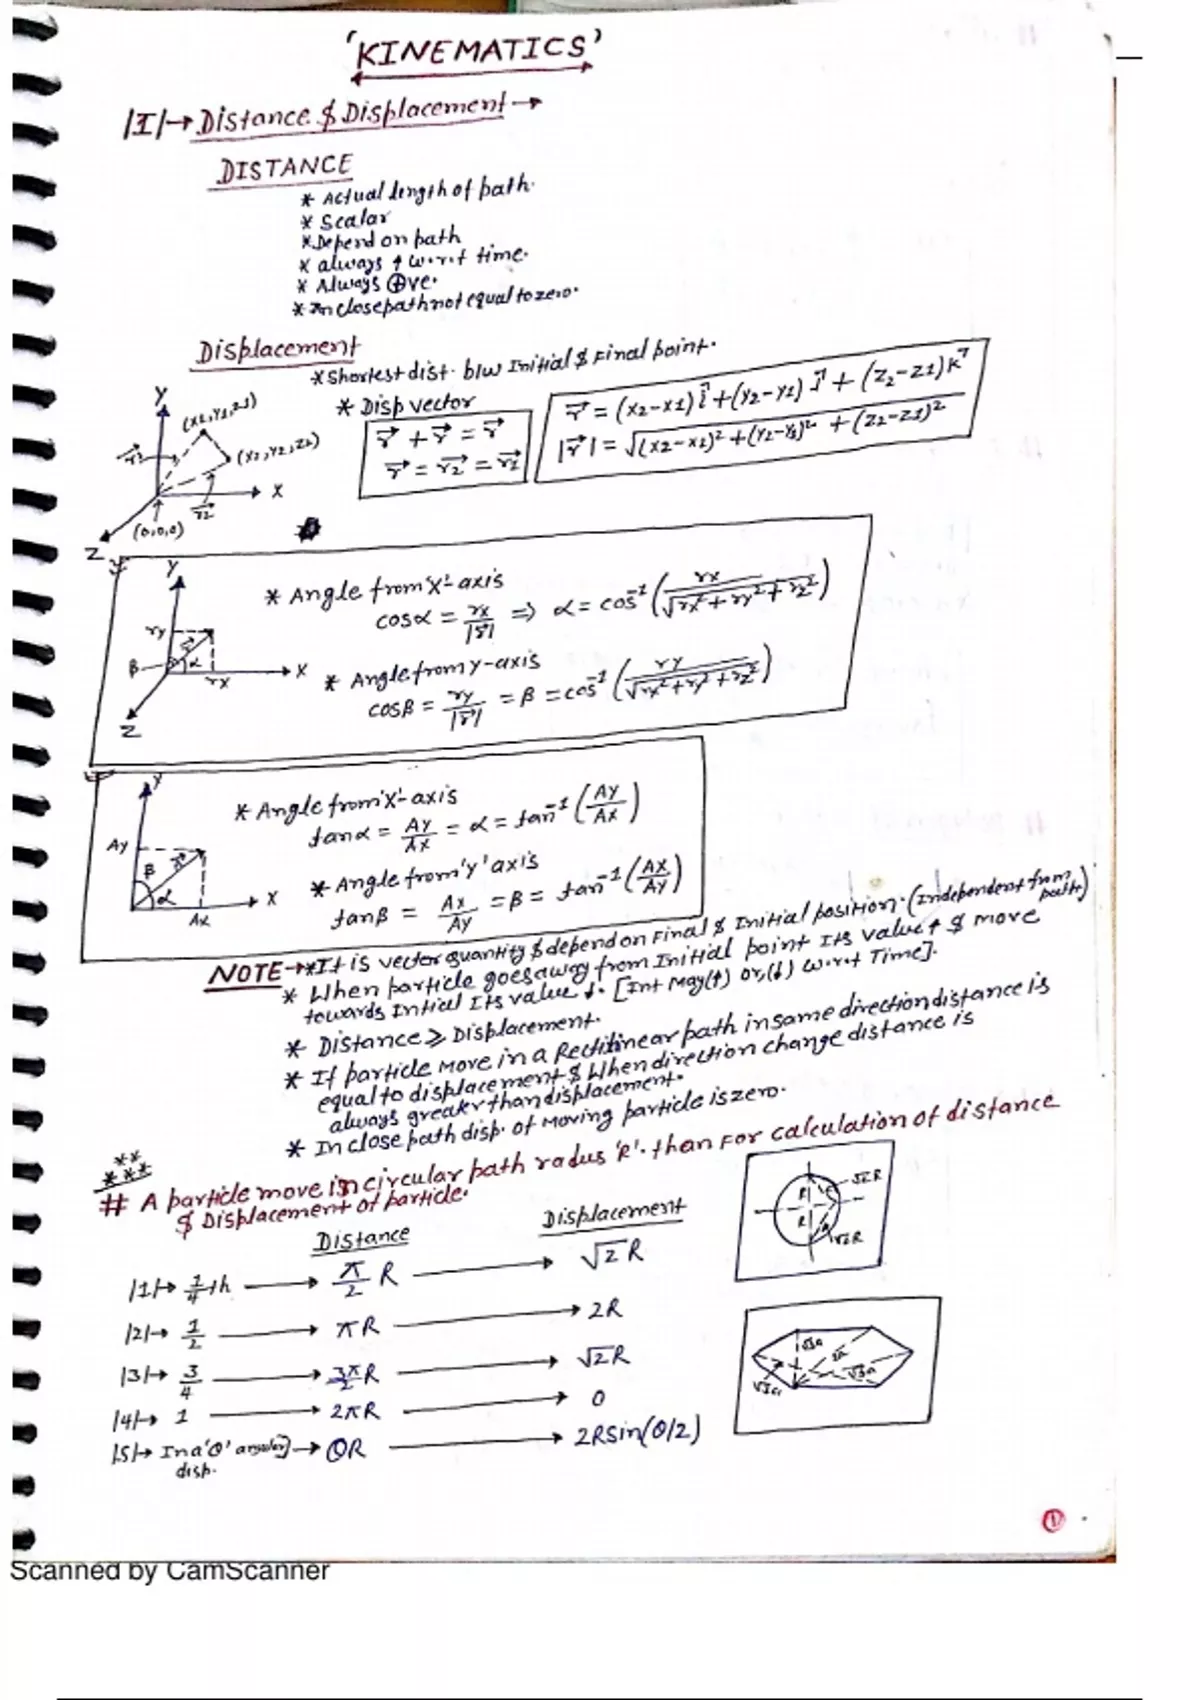 'KINEMATICS'
|I|→ Distance & Displacement →
DISTANCE
* Actual length of path.
* Scalar
* Depend on path
* always ↑ w.r.t time.
* Always ⊕ve.
* In close path not equal to zero.
Displacement
* Shortest dist. b/w Initial & Final point.
* Disp vector
r⃗ + r⃗ = r⃗
r⃗ = r⃗2 = r⃗1
r⃗ = (x2-x1) i⃗ + (y2-y1) j⃗ + (z2-z1) k⃗
|r⃗| = √(x2-x1)² + (y2-y1)² + (z2-z1)²
Y
(x2,y2,z2)
X
(0,0,0)
Z
* Angle from 'x'-axis
cosα = rx/|r⃗| ⇒ α = cos⁻¹ (rx/√rx²+ry²+rz²)
* Angle from y-axis
cosβ = ry/|r⃗| = β = cos⁻¹ (ry/√rx²+ry²+rz²)
Y
ry
β
α
rx
X
Z
* Angle from 'x'-axis
tanα = Ay/Ax = α = tan⁻¹ (Ay/Ax)
* Angle from 'y' axis
tanβ = Ax/Ay = β = tan⁻¹ (Ax/Ay)
Y
Ay
β
α
Ax
X
NOTE →* It is vector quantity & depend on Final & Initial position. (Independent from path)
* When particle goes away from Initial point Its value ↑ & move
towards Intiel Its value ↓. [Int May(↑) or,(↓) w.r.t Time].
* Distance ⩾ Displacement.
* If particle move in a Rectilinear path in same direction distance is
equal to displacement & When direction change distance is
always greater than displacement.
* In close path disp. of moving particle is zero.
**
***
# A particle move in circular path radus 'R'. than For calculation of distance
& Displacement of particle.
Distance Displacement
|1|→ 1/4 th → π/2 R → √2 R
|2|→ 1/2 → πR → 2R
|3|→ 3/4 → 3π/2 R → √2R
|4|→ 1 → 2πR → 0
|5|→ In a 'θ' angular] → θR → 2Rsin(θ/2)
disp.
√2R
R
R
√2R
√3a
2a
√3a
√3a
1
Scanned by CamScanner